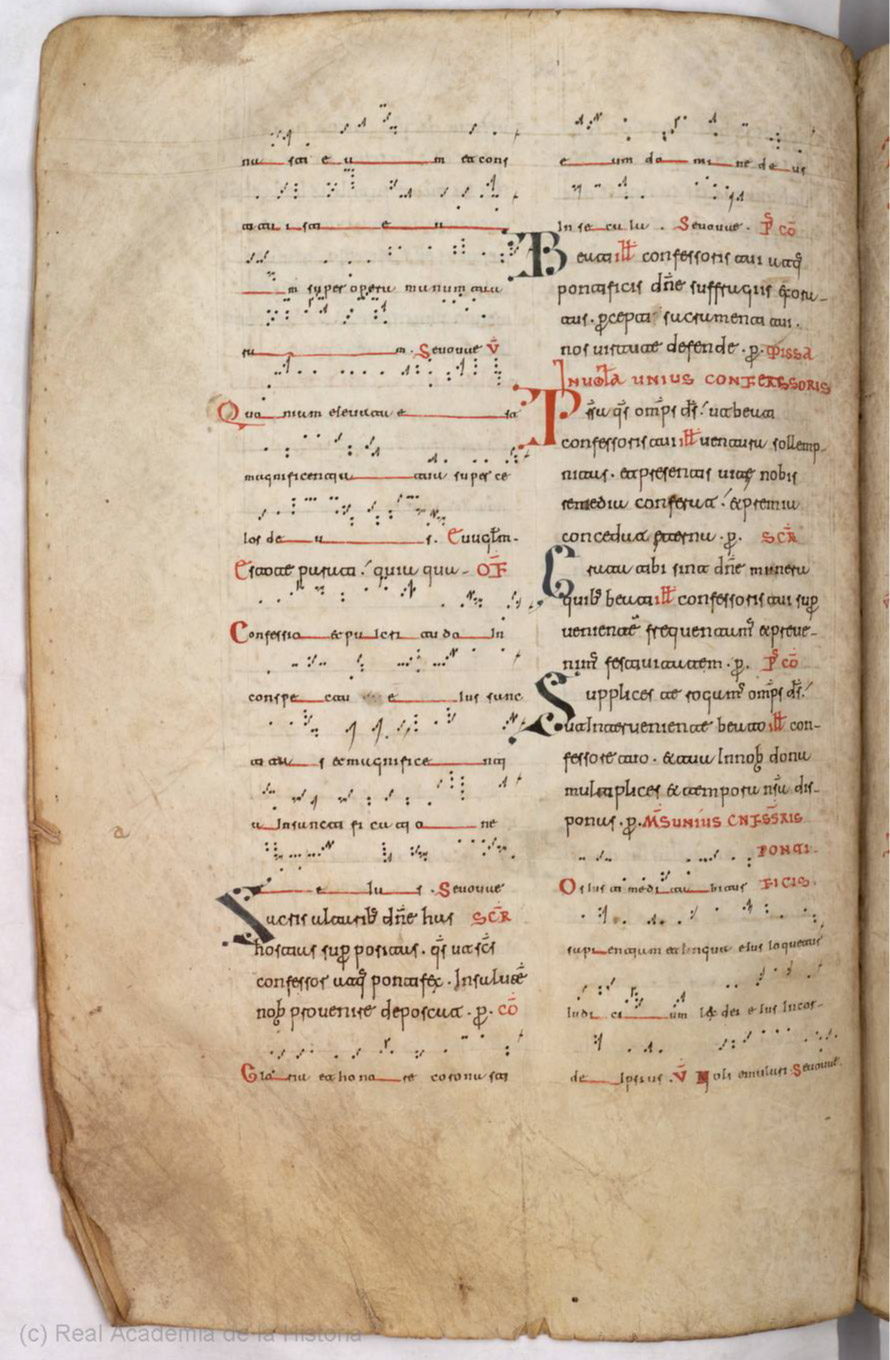 nu sti e u m et cons
ti tu i sti e u
m super opera manuum tua
ru m. Seuouae V̄
Quo nium eleuata e sta
magnificentia tua super ce
los de u s. Euuglm̄.
Estote parati. quia qua. OF̄
Confessio et pulcri tu do in
conspe ctu e ius sanc
ti tas et magnifice nti
a In sancti fi ca ti o ne
e iu s. Seuouae
Sacris altarib; dn̄e has SCR̄
hostias sup̄ positas. qs̄ ut sc̄s
confessor tuq; pontifex. In salutē
nob̄ prouenire deposcat. p̄. cō
Glo ria et ho no re coronasti
e um do mi ne de us
In se cu lu. Seuouae. P̄ cō
Beati ill̄ confessoris tui atq;
pontificis dn̄e suffragiis exora-
tus. p̄cepta sacramenta tui.
nos uirtute defende. p̄. Missa
In uigła unius confessoris
Pr̄sta qs̄ omp̄s ds̄. ut beati
confessoris tui ill̄ uentura sollemp-
nitas. et presentis uite nobis
remedia conferat. et premia
concedat eterna. p̄. SCR̄
Grata tibi sint dn̄e munera
quib; beati ill̄ confessoris tui sup̄
uenientē frequentam̄ et preue-
nim̄ festiuitatem. p̄. P̄ cō
Supplices te rogam̄ omp̄s ds̄.
ut Interueniente beato ill̄ con-
fessore tuo. et tua In nob̄ dona
multiplices et tempora nr̄a dis-
ponas. p̄. MS̄ UNIUS CNFSSRIS
PONTI-
Os ius ti medi ta bitur FICIS.
sapi entiam et lingua eius loquetur
iudi ci um lex dei eius In cor-
de ipsius. V̄ Noli emulari Seuouae
a
(c) Real Academia de la Historia